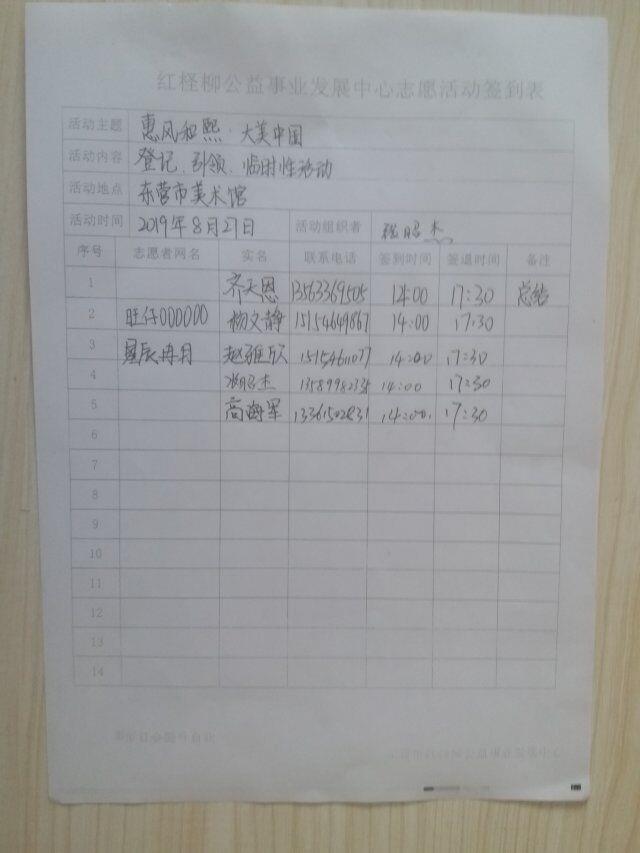 红柽柳公益事业发展中心志愿活动签到表
活动主题 惠风和熙·大美中国
活动内容 登记、引领、临时性活动
活动地点 东营市美术馆
活动时间 2019年8月27日 活动组织者 杰
序号 志愿者网名 实名 联系电话 签到时间 签退时间 备注
1 齐天恩 13563369505 14:00 17:30 总结
2 旺仔000000 杨文静 15154649867 14:00 17:30
3 星辰冉月 赵雅欣 15154611077 14:00 17:30
4 杰 13589982335 14:00 17:30
5 高海军 13361502831 14:00 17:30
6
7
8
9
10
11
12
13
14